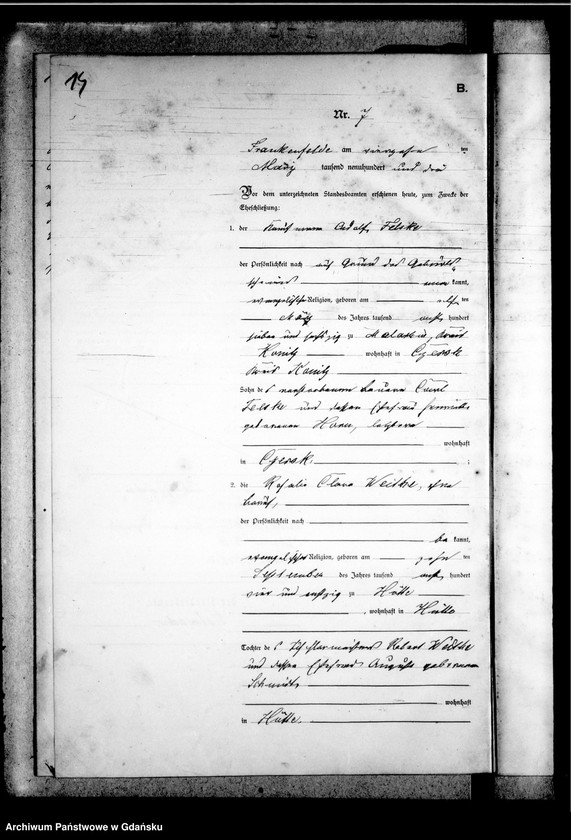 B.
Nr. 7
Frankenfelde am vierzehn ten
März tausend neunhundert und drei
Vor dem unterzeichneten Standesbeamten erschienen heute, zum Zwecke der
Eheschließung:
1. der Kaufmann Adolf Felske
der Persönlichkeit nach auf Grund des Geburts-
scheines kannt,
evangelischer Religion, geboren am elf ten
März des Jahres tausend acht hundert
sieben und zu Kreis
Konitz wohnhaft in Czersk
Kreis Konitz
Sohn des verstorbenen Bauern Carl
Felske und dessen Ehefrau
geborenen letztere
wohnhaft
in Czersk ;
2. die Rosalie Clara Weitke, ohne
Beruf,
der Persönlichkeit nach
be kannt,
evangelischer Religion, geboren am zehn ten
September des Jahres tausend acht hundert
vier und achtzig zu Hütte
, wohnhaft in Hütte
Tochter des Tischlermeisters Robert Weitke
und dessen Ehefrau Auguste geborenen
Schmidt
wohnhaft
in Hütte.
Archiwum Państwowe w Gdańsku